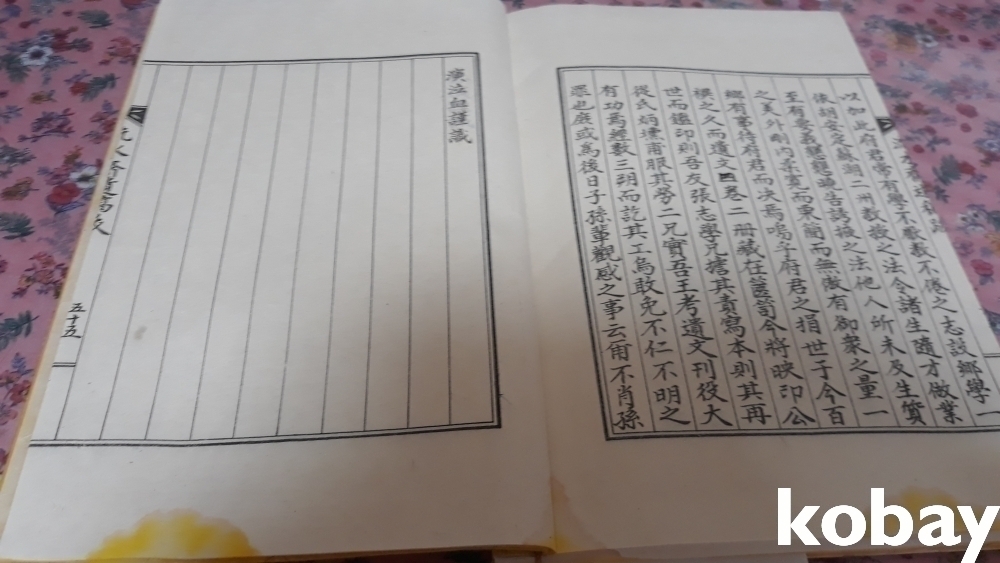 以加此府君常有學不厭敎不倦之志設鄕學一
依胡安定蘇湖二州敎授之法令諸生隨才倣業
至有義懇懇曉告誘掖之法他人所未及生質
之美外剛內柔寬而栗簡而無傲有卻衆之量一
鄕有事待府君而決焉嗚乎府君之捐世于今百
禩之久而遺文四卷二冊藏在篋笥今將映印公
世而鑑印則吾友張志學凡擔其責寫本則其再
從氏炳標甫服其勞二兄實吾王考遺文刊役大
有功焉經數三朔而訖其工烏敢免不仁不明之
罪也庶或爲後日子孫輩觀感之事云爾不肖孫
演泣血謹識
五十五
kobay